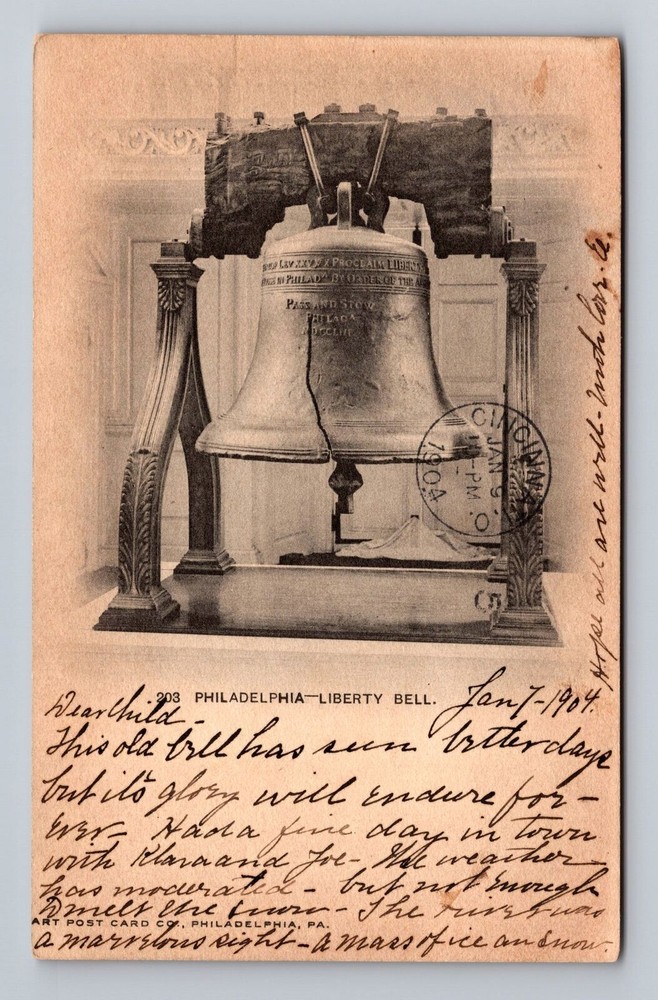 LEV XXV X PROCLAIM LIBERT
IN PHILADA BY ORDER OF THE
PASS AND STOW
PHILADA
MDCCLIII
CINCINNATI, O.
JAN 9
-PM
1904
5
203 PHILADELPHIA—LIBERTY BELL.
Jan 7-1904.
Dear Child-
This old bell has seen better days
but it's glory will endure for-
ever- Had a fine day in town
with Klara and Joe- The weather
has moderated - but not enough
to melt the snow- The river was
ART POST CARD CO., PHILADELPHIA, PA.
a marvelous sight- a mass of ice an snow.
Hope all are well- With love. E.